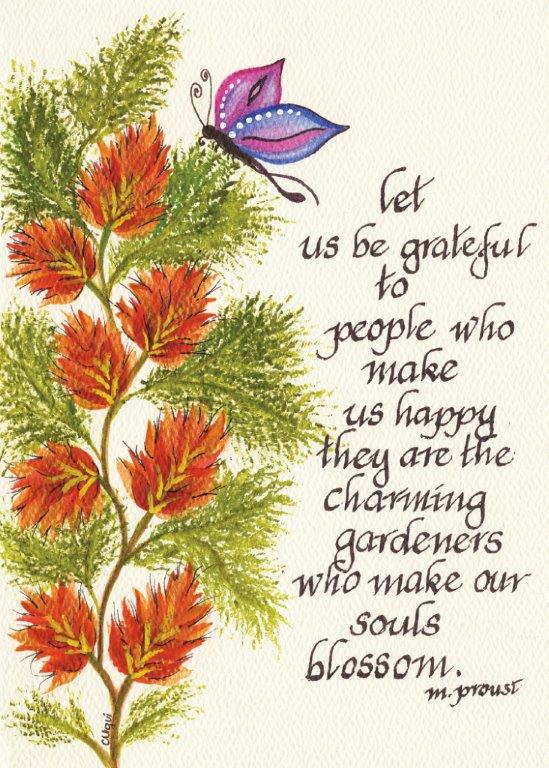 let
us be grateful
to
people who
make
us happy
they are the
charming
gardeners
who make our
souls
blossom.
m. proust